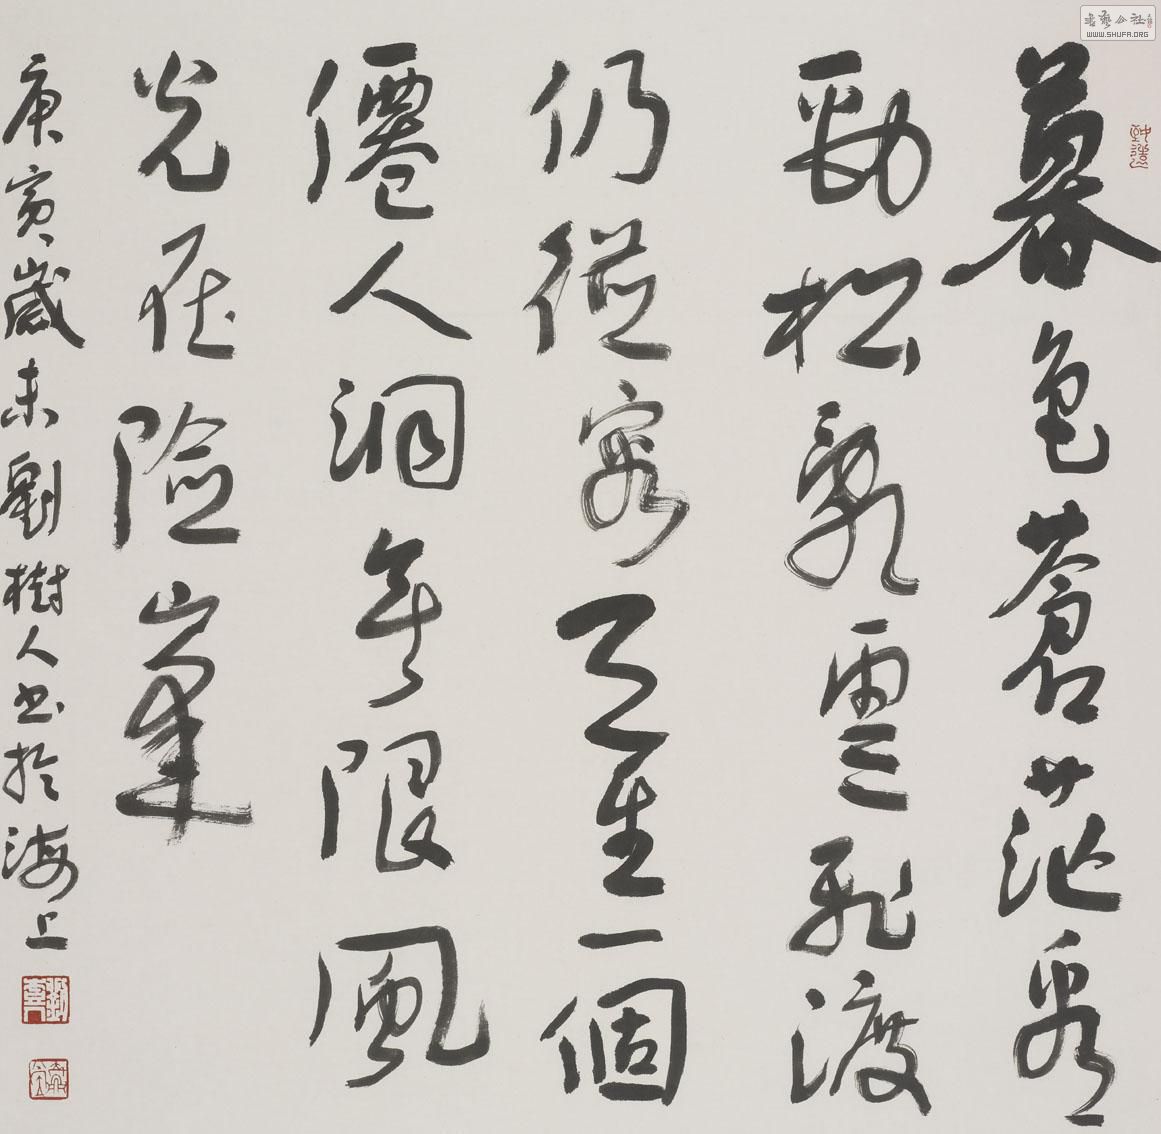 暮色蒼茫看
勁松亂雲飛渡
仍從容天生一個
僊人洞無限風
光在險峯
庚寅歲末劉樹人書於海上
書藝公社
WWW.SHUFA.ORG